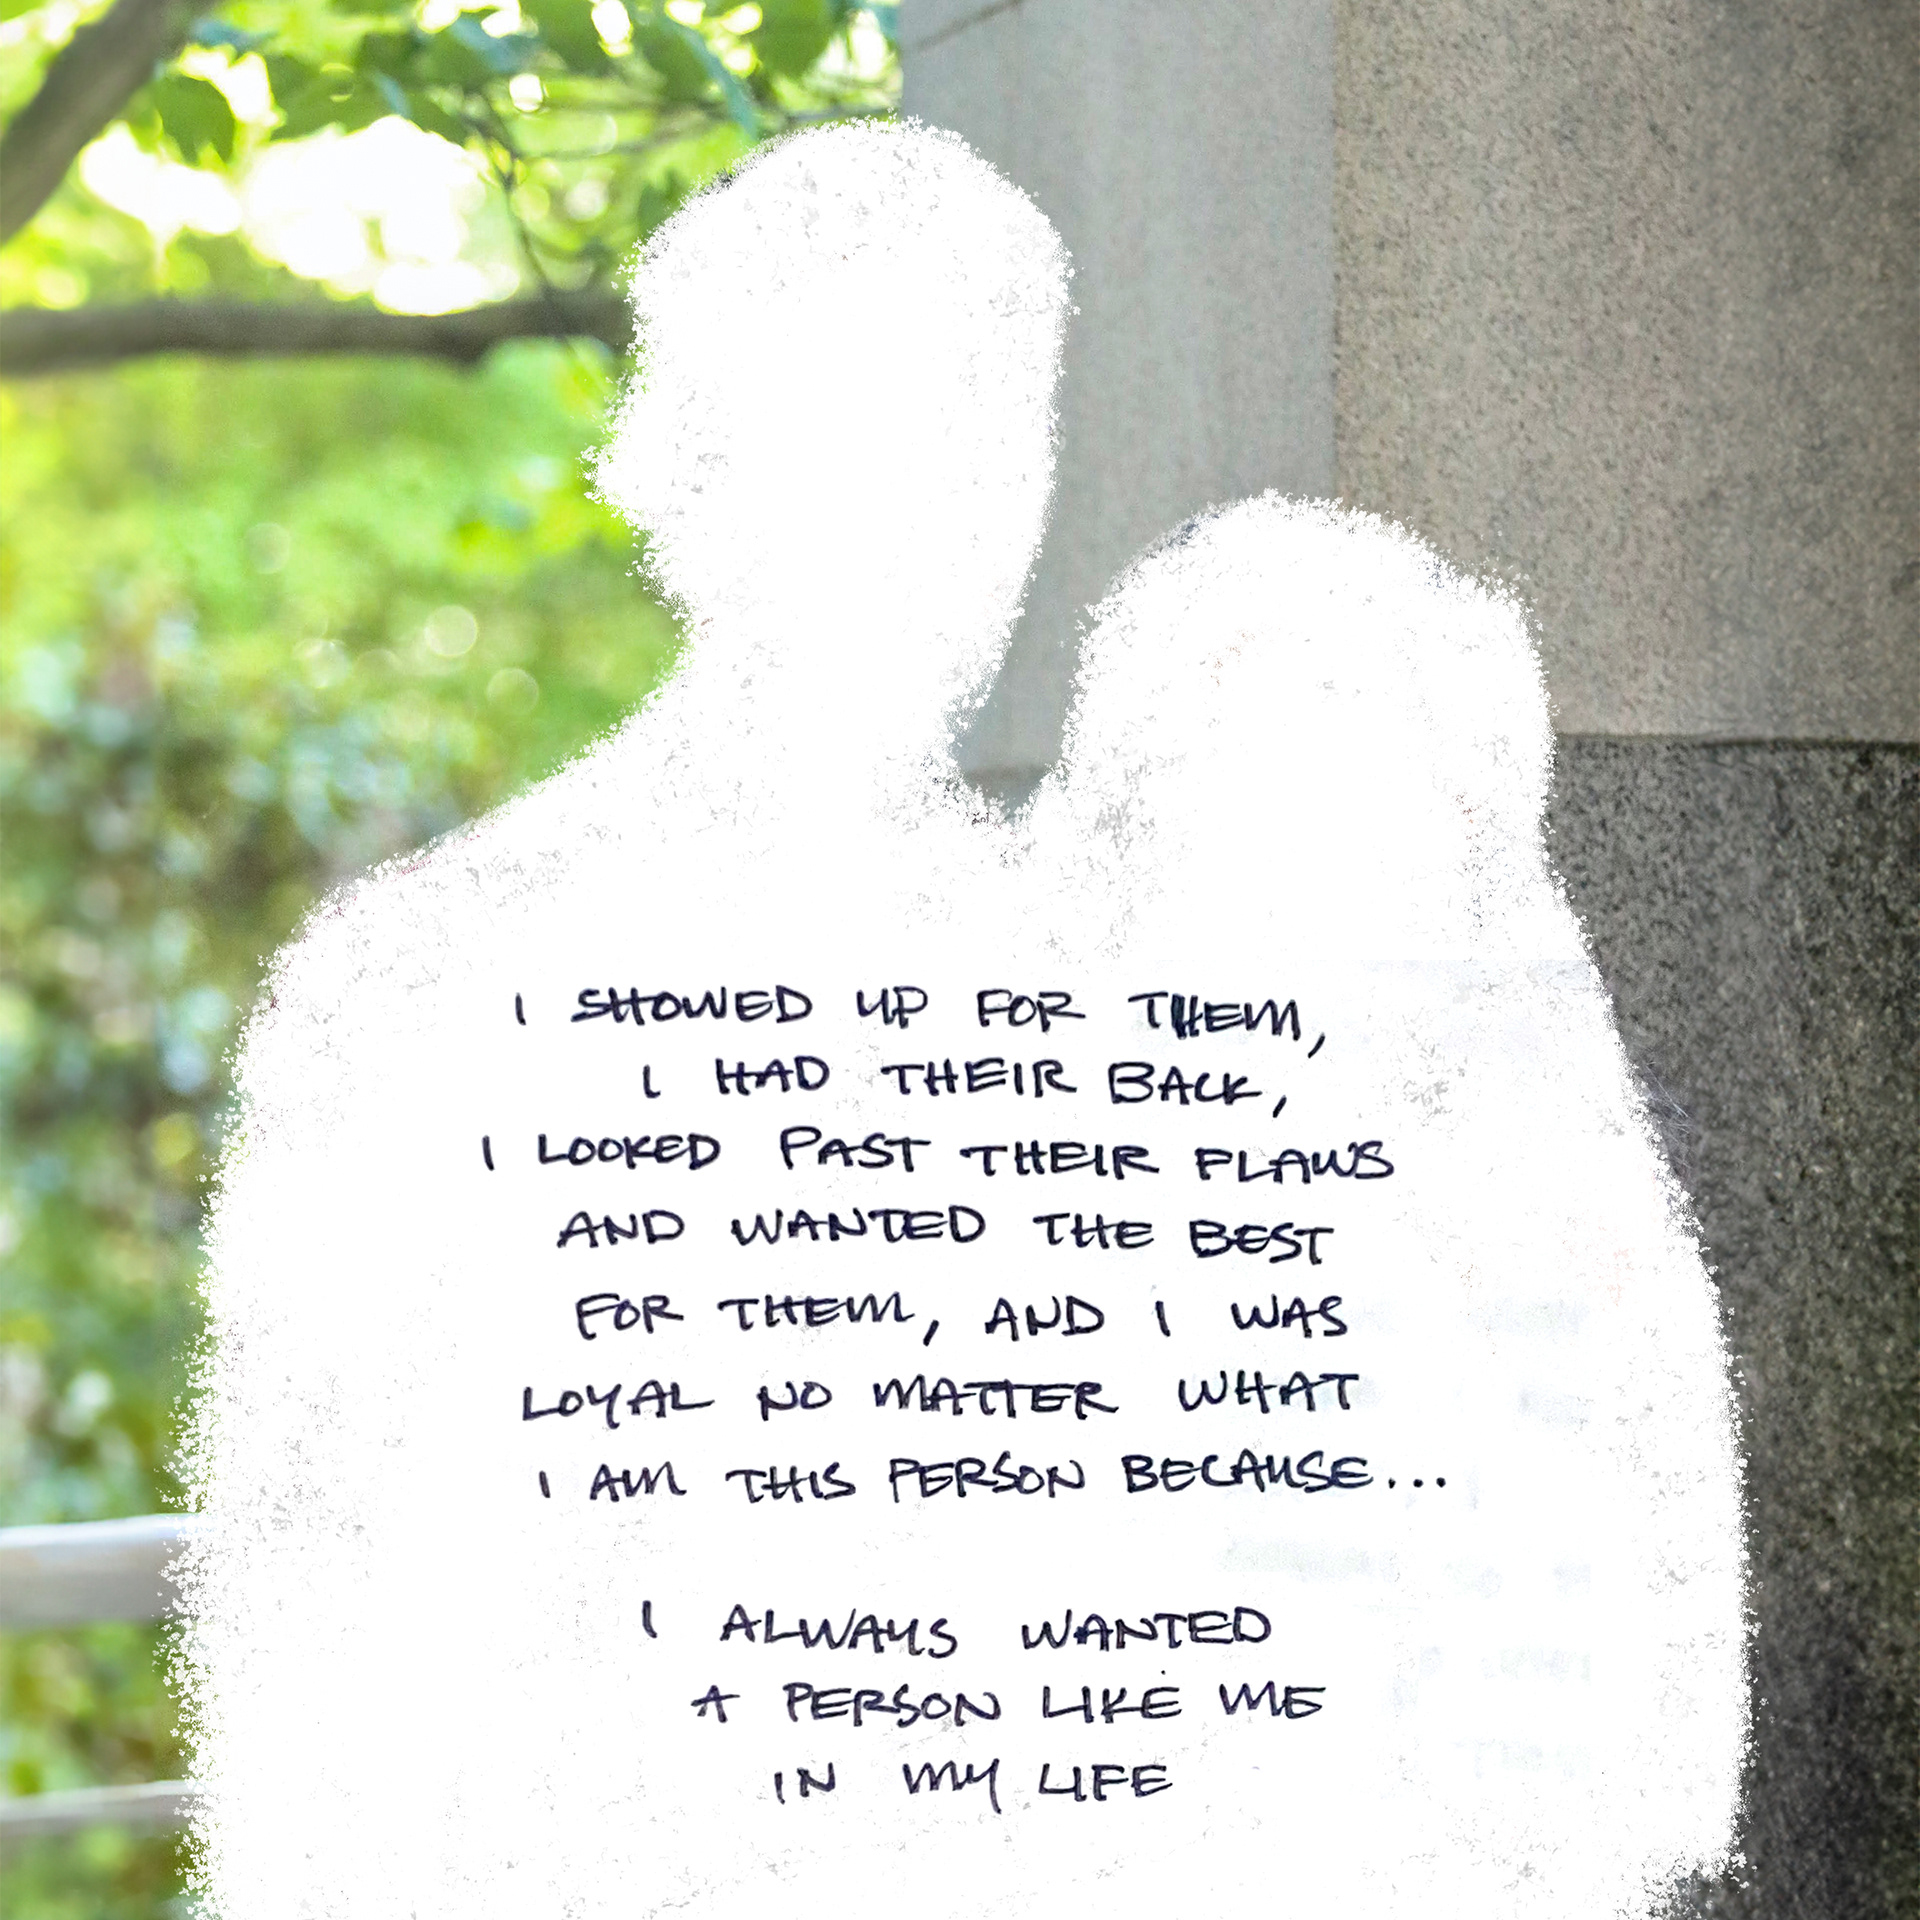 I SHOWED UP FOR THEM,
I HAD THEIR BACK,
I LOOKED PAST THEIR FLAWS
AND WANTED THE BEST
FOR THEM, AND I WAS
LOYAL NO MATTER WHAT
I AM THIS PERSON BECAUSE...
I ALWAYS WANTED
A PERSON LIKE ME
IN MY LIFE